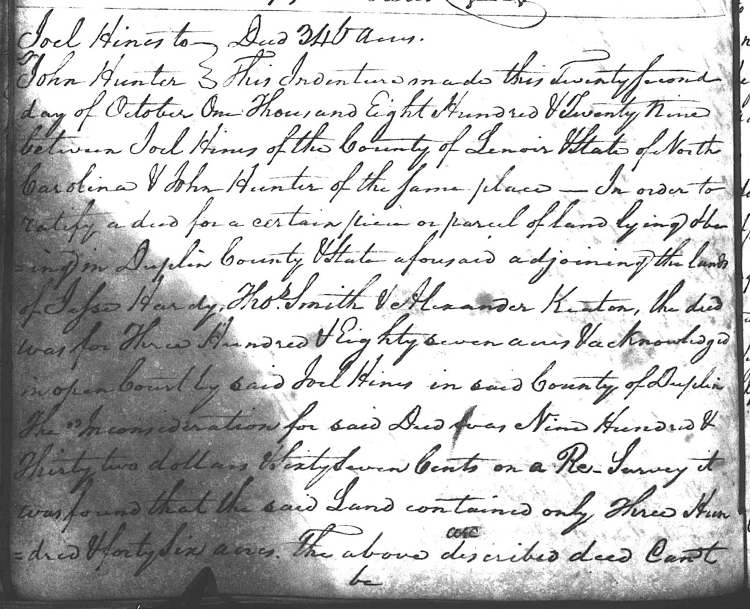 Joel Hines to } Deed 346 acres.
John Hunter } This Indenture made this Twenty Second
day of October One Thousand Eight Hundred & Twenty Nine
between Joel Hines of the County of Lenoir & State of North
Carolina & John Hunter of the same place — In order to
ratify a deed for a certain piece or parcel of land lying & be
=ing in Duplin County & State aforesaid adjoining the lands
of Jesse Hardy, Thos. Smith & Alexander Keaton, the deed
was for Three Hundred & Eighty seven acres & acknowledged
in open Court by said Joel Hines in said County of Duplin
The consideration for said Deed was Nine Hundred &
Thirty two dollars & Sixty Seven Cents on a Re-Survey it
was found that the said Land contained only Three Hun
=dred & forty Six acres. The above described deed Can't
be